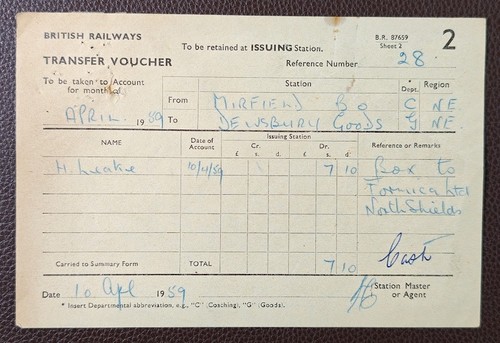 BRITISH RAILWAYS
B.R. 87659
Sheet 2
2
TRANSFER VOUCHER
To be retained at ISSUING Station.
Reference Number 28
To be taken to Account
for month of
APRIL 1959
Station
* Dept.
Region
From MIRFIELD B O C NE
To DEWSBURY GOODS G NE
NAME
Date of Account
Issuing Station
Cr.
£ s. d.
Dr.
£ s. d.
Reference or Remarks
H. Leake 10/4/59 7 10 Box to
Formica Ltd
North Shields
Cash
Carried to Summary Form TOTAL 7 10
Date 10 Apl 1959
Station Master
or Agent
* Insert Departmental abbreviation, e.g., "C" (Coaching), "G" (Goods).